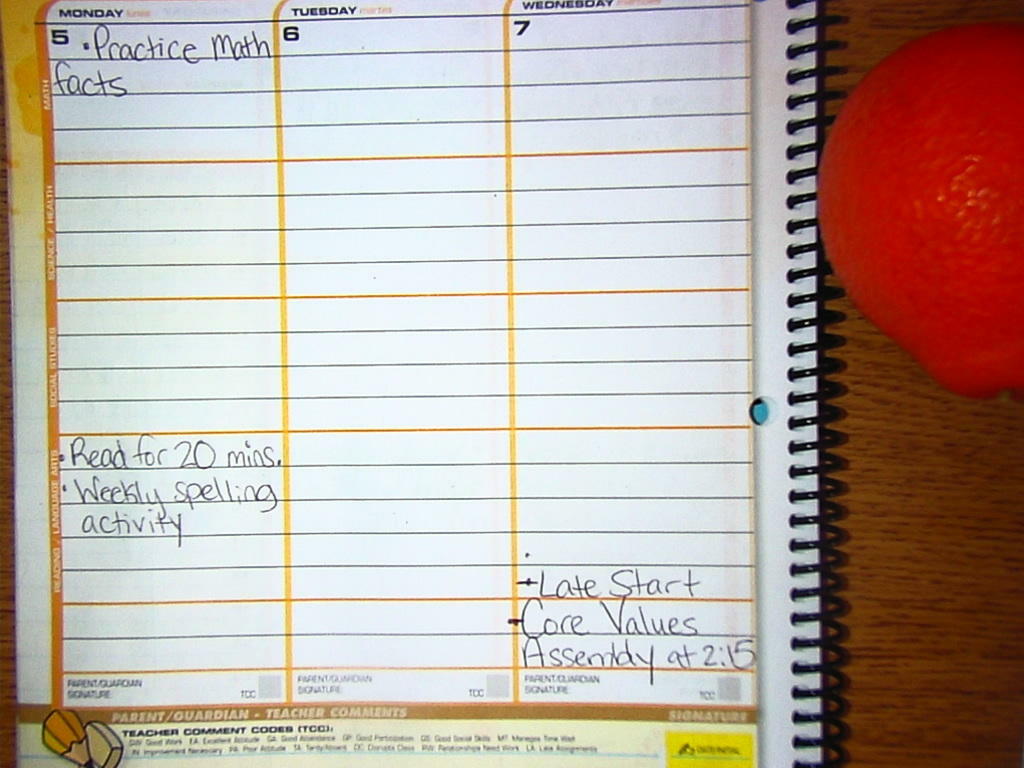 MONDAY lunes
TUESDAY martes
WEDNESDAY miércoles
5 • Practice Math
facts
6
7
MATH
SCIENCE / HEALTH
SOCIAL STUDIES
READING LANGUAGE ARTS
• Read for 20 mins.
• Weekly spelling
activity
- Late Start
- Core Values
Assembly at 2:15
PARENT/GUARDIAN
SIGNATURE: TCC
PARENT/GUARDIAN
SIGNATURE: TCC
PARENT/GUARDIAN
SIGNATURE: TCC
PARENT/GUARDIAN - TEACHER COMMENTS SIGNATURE
TEACHER COMMENT CODES (TCC):
GW: Good Work EA: Excellent Attitude GA: Good Attendance GP: Good Participation GS: Good Social Skills MT: Manages Time Well
IN: Improvement Necessary PA: Poor Attitude TA: Tardy/Absent DC: Disrupts Class RW: Relationships Need Work LA: Late Assignments